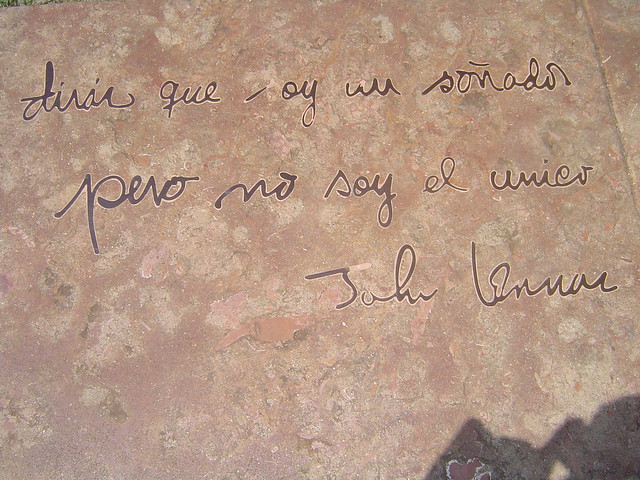 dirán que soy un soñador
pero no soy el unico
John Lennon